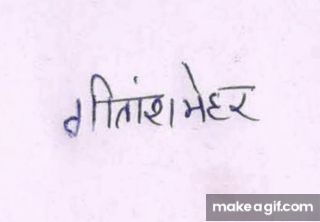 गीतांश मेहर
makeagif.com